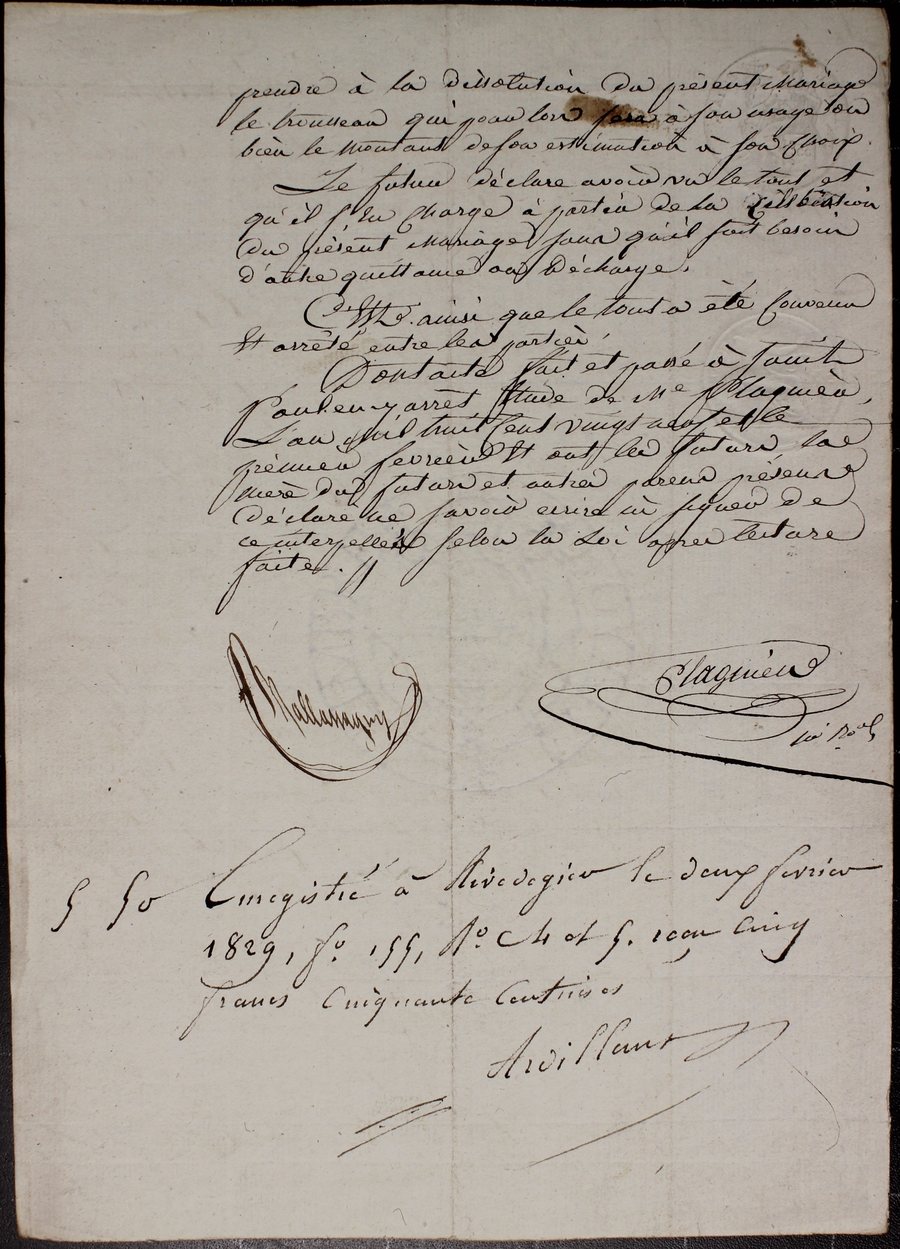 prendre à la dissolution du présent Mariage
le trousseau qui pour lors sera à son usage ou
bien le montant de son estimation à son choix.
Le futur déclare avoir vu le tout et
qu'il s'en charge à partir de la Célébration
du présent Mariage sans qu'il soit besoin
d'autre quittance ou décharge.
C'est ainsi que le tout a été Convenu
Et arrêté entre les parties
Dont acte fait et passé à Saint
Paul en jarrêt Etude de Me Plagnieu,
L'an Mil huit Cent vingt neuf et le
premier février Et ont les futurs la
mere du futur et autres parens présens
déclaré ne savoir ecrire ni signer de
ce interpellés selon la Loi apres lecture
faite. //
Plagnieu
5 50 Enregistré à Rivedegier le deux fevrier
1829, fo. 155, Ro. C 4 et 5. reçu Cinq
francs Cinquante Centimes
Ardillant